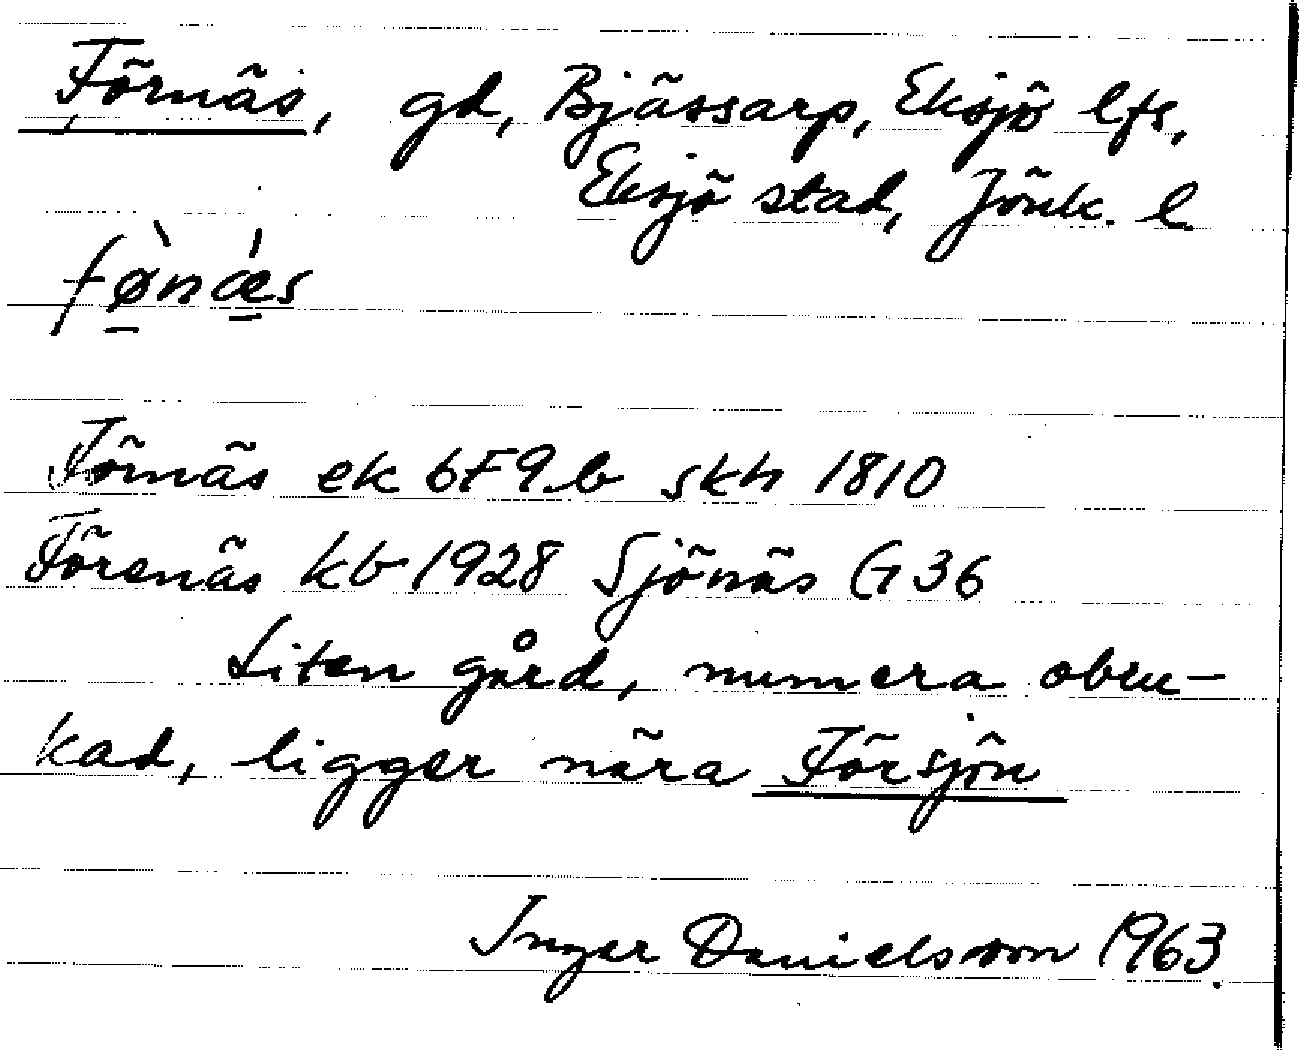 Förnäs, gd, Bjässarp, Eksjö lfs,
Eksjö stad, Jönk. l.
fø̠̀nǽ̠s
Förnäs ek 6F9b skh 1810
Försnäs kb 1928 Sjönäs G 36
Liten gård, numera obru-
kad, ligger nära Försjön
Inger Danielsson 1963.